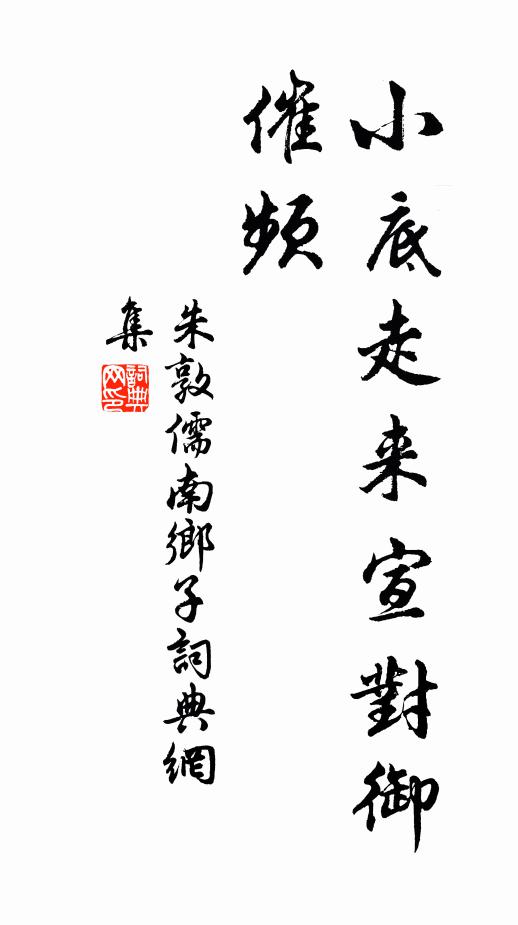 小底走来宣對御
催頻
朱敦儒南鄉子詞典網
集
詞典網印